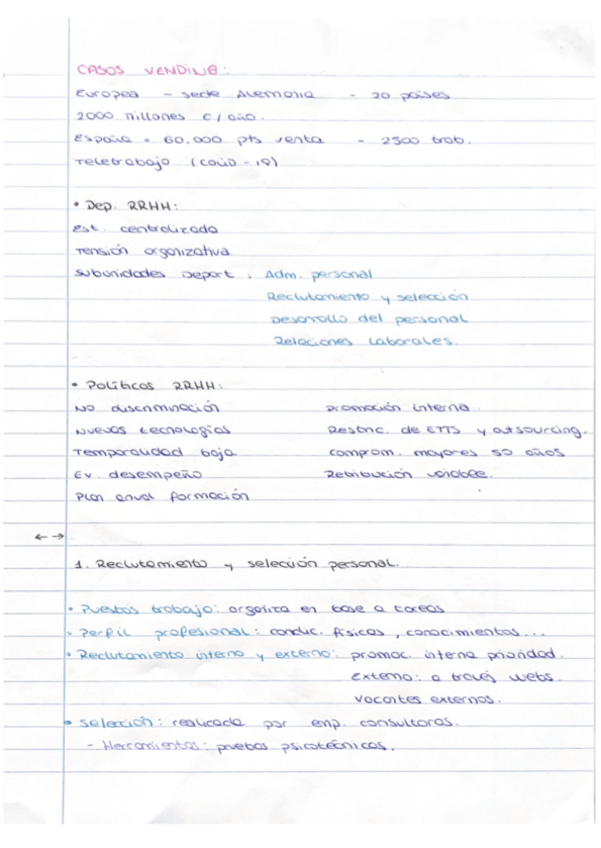 CASOS VENDING:
Europea - sede Alemania - 20 países
2000 millones € / año.
España = 60.000 pts venta - 2500 trab.
Teletrabajo (covid-19)
• Dep. RRHH:
Est. centralizada
Tensión organizativa
Subunidades Depart: Adm. personal
Reclutamiento y selección
Desarrollo del personal
Relaciones Laborales.
• Políticas RRHH:
NO discriminación promoción interna.
Nuevas tecnologías Restric. de ETTS y outsourcing.
Temporalidad baja comprom. mayores 50 años
Ev. desempeño Retribución variable.
Plan anual formación
← →
1. Reclutamiento y selección personal.
• Puestos trabajo: organiza en base a tareas
• Perfil profesional: condic. físicas, conocimientos...
• Reclutamiento interno y externo: promoc. interna prioridad.
Externo: a través webs.
Vacantes externas.
• Selección: realizada por emp. consultoras.
- Herramientas: pruebas psicotécnicas.